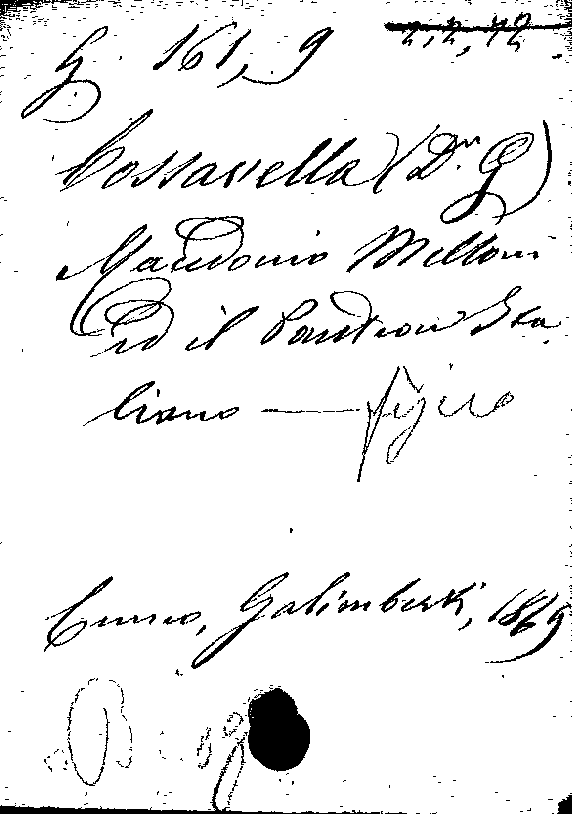 G. 161, 9
2,2,72
Cossavella (Dn G)
Macedonio Melloni
ed il Panteon Ita
liano —
Cuneo, Galimberti, 1869